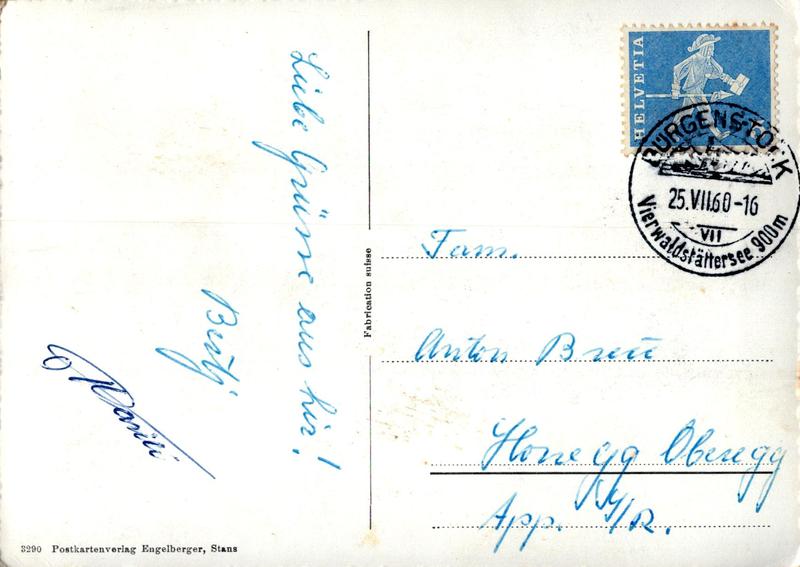 Liebe Grüsse aus hir!
Bestj
HELVETIA
BÜRGENSTOCK
25.VII.60-16
VII
Vierwaldstättersee 900m
Fabrication suisse
Fam.
Anton Breu
Honegg Oberegg
App. I/R.
3290 Postkartenverlag Engelberger, Stans